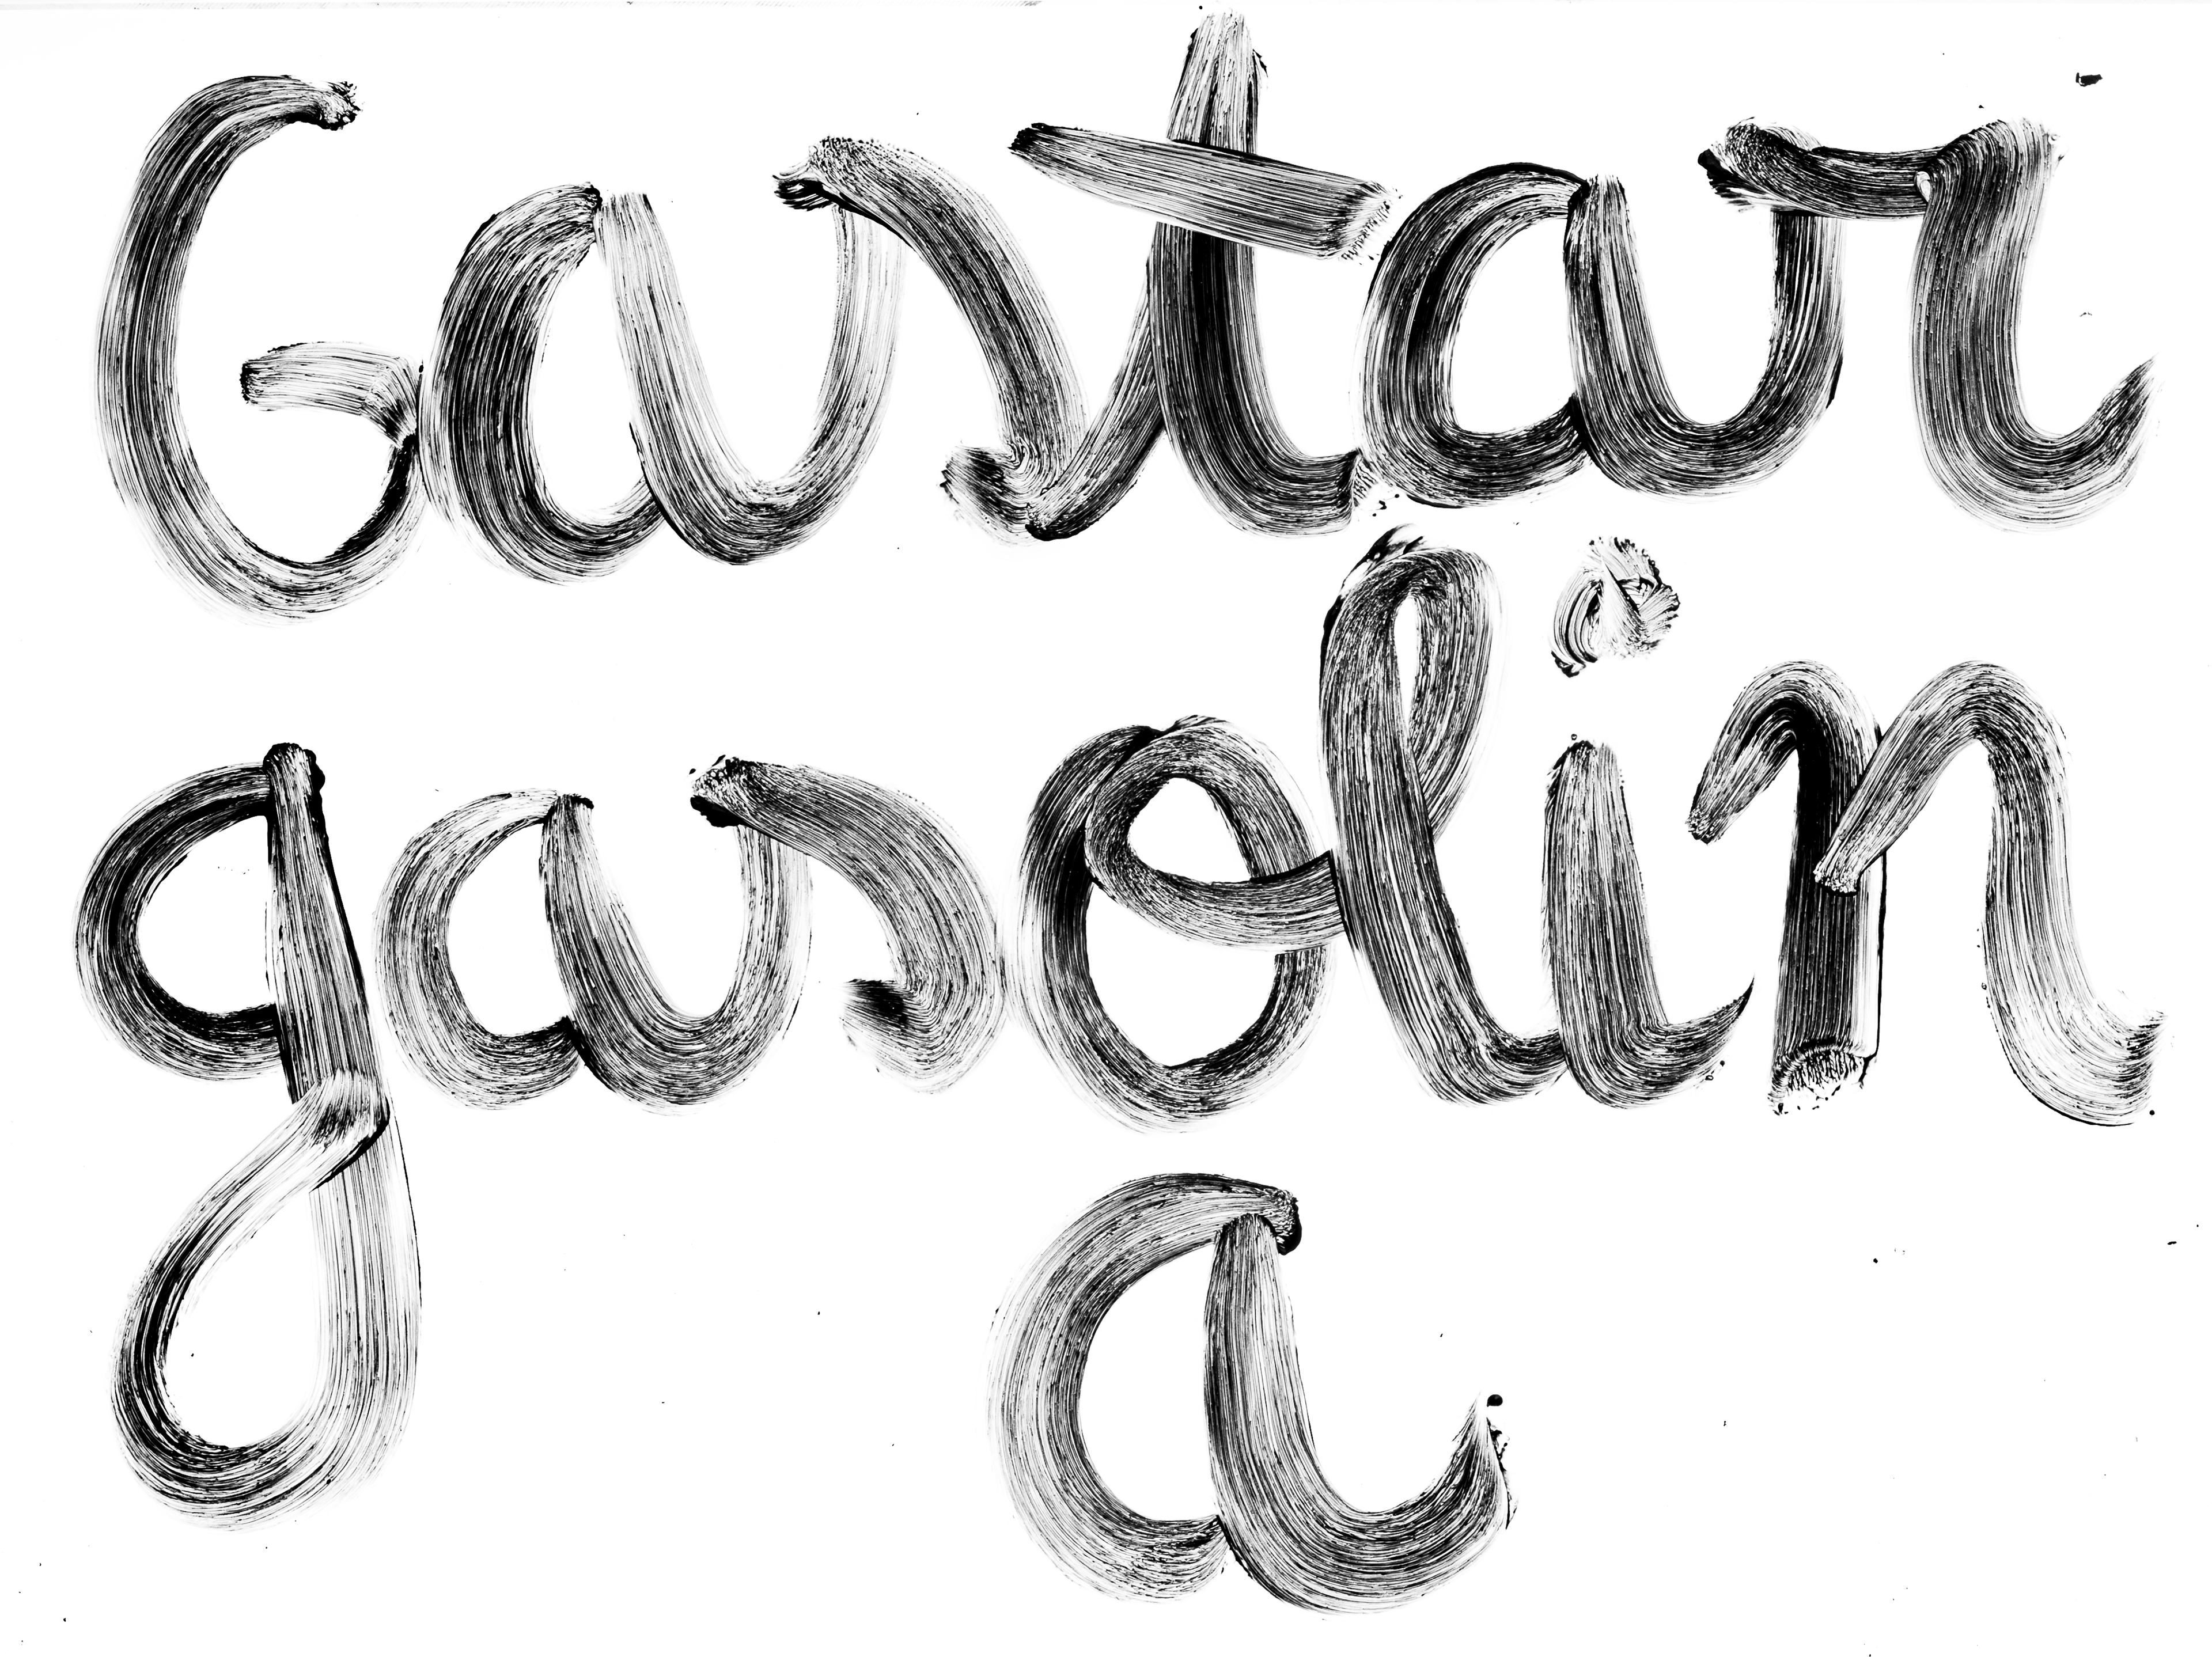 Gastar
gasolin
a